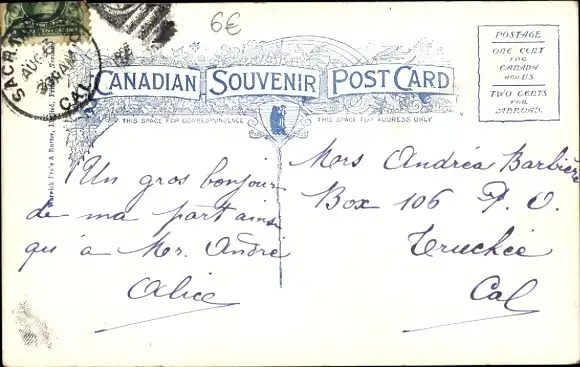 6€
SACRA
AUG
CAL
CANADIAN SOUVENIR POST CARD
THIS SPACE FOR CORRESPONDENCE
THIS SPACE FOR ADDRESS ONLY
POSTAGE
ONE CENT
FOR
CANADA
AND U.S.
TWO CENTS
FOR
ABROAD.
Un gros bonjour
de ma part ainsi
qu à Mr. André
Alice
Mers Andréa Barbière
Box 106 P. O.
Truckée
Cal